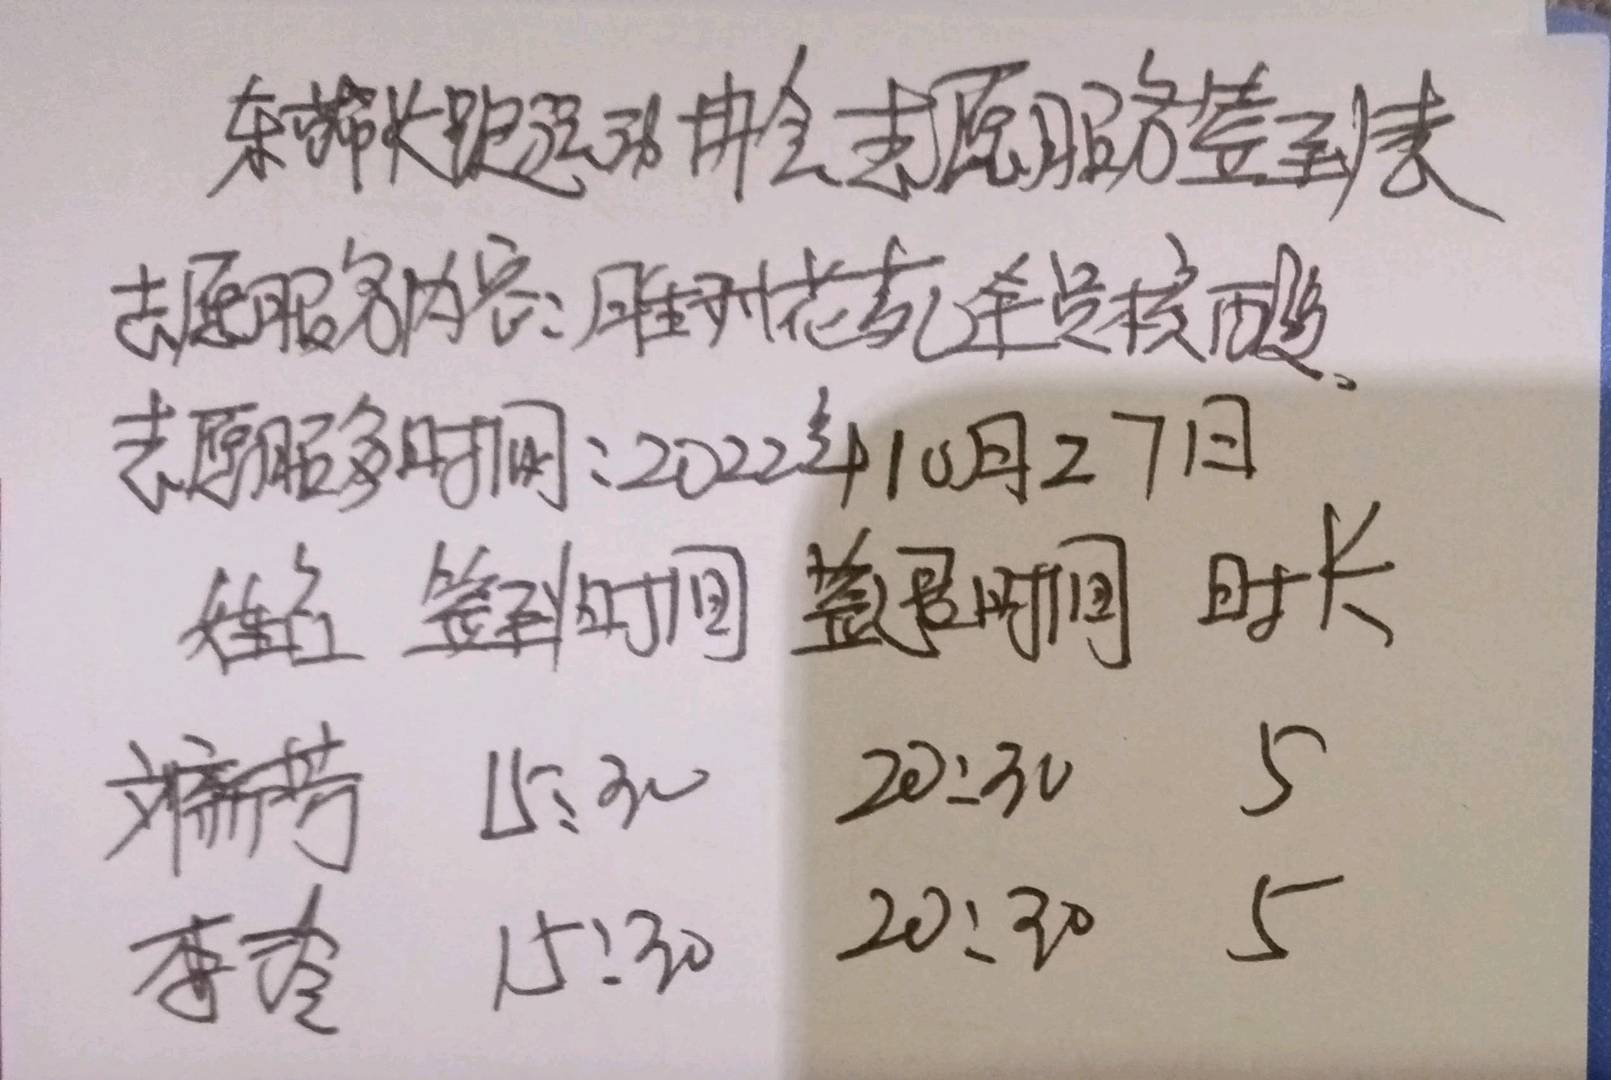 东莞长跑运动协会志愿服务签到表
志愿服务内容：花苑全员核酸。
志愿服务时间：2022年10月27日
姓名 签到时间 签退时间 时长
刘新芳 15:30 20:30 5
李玲 15:30 20:30 5